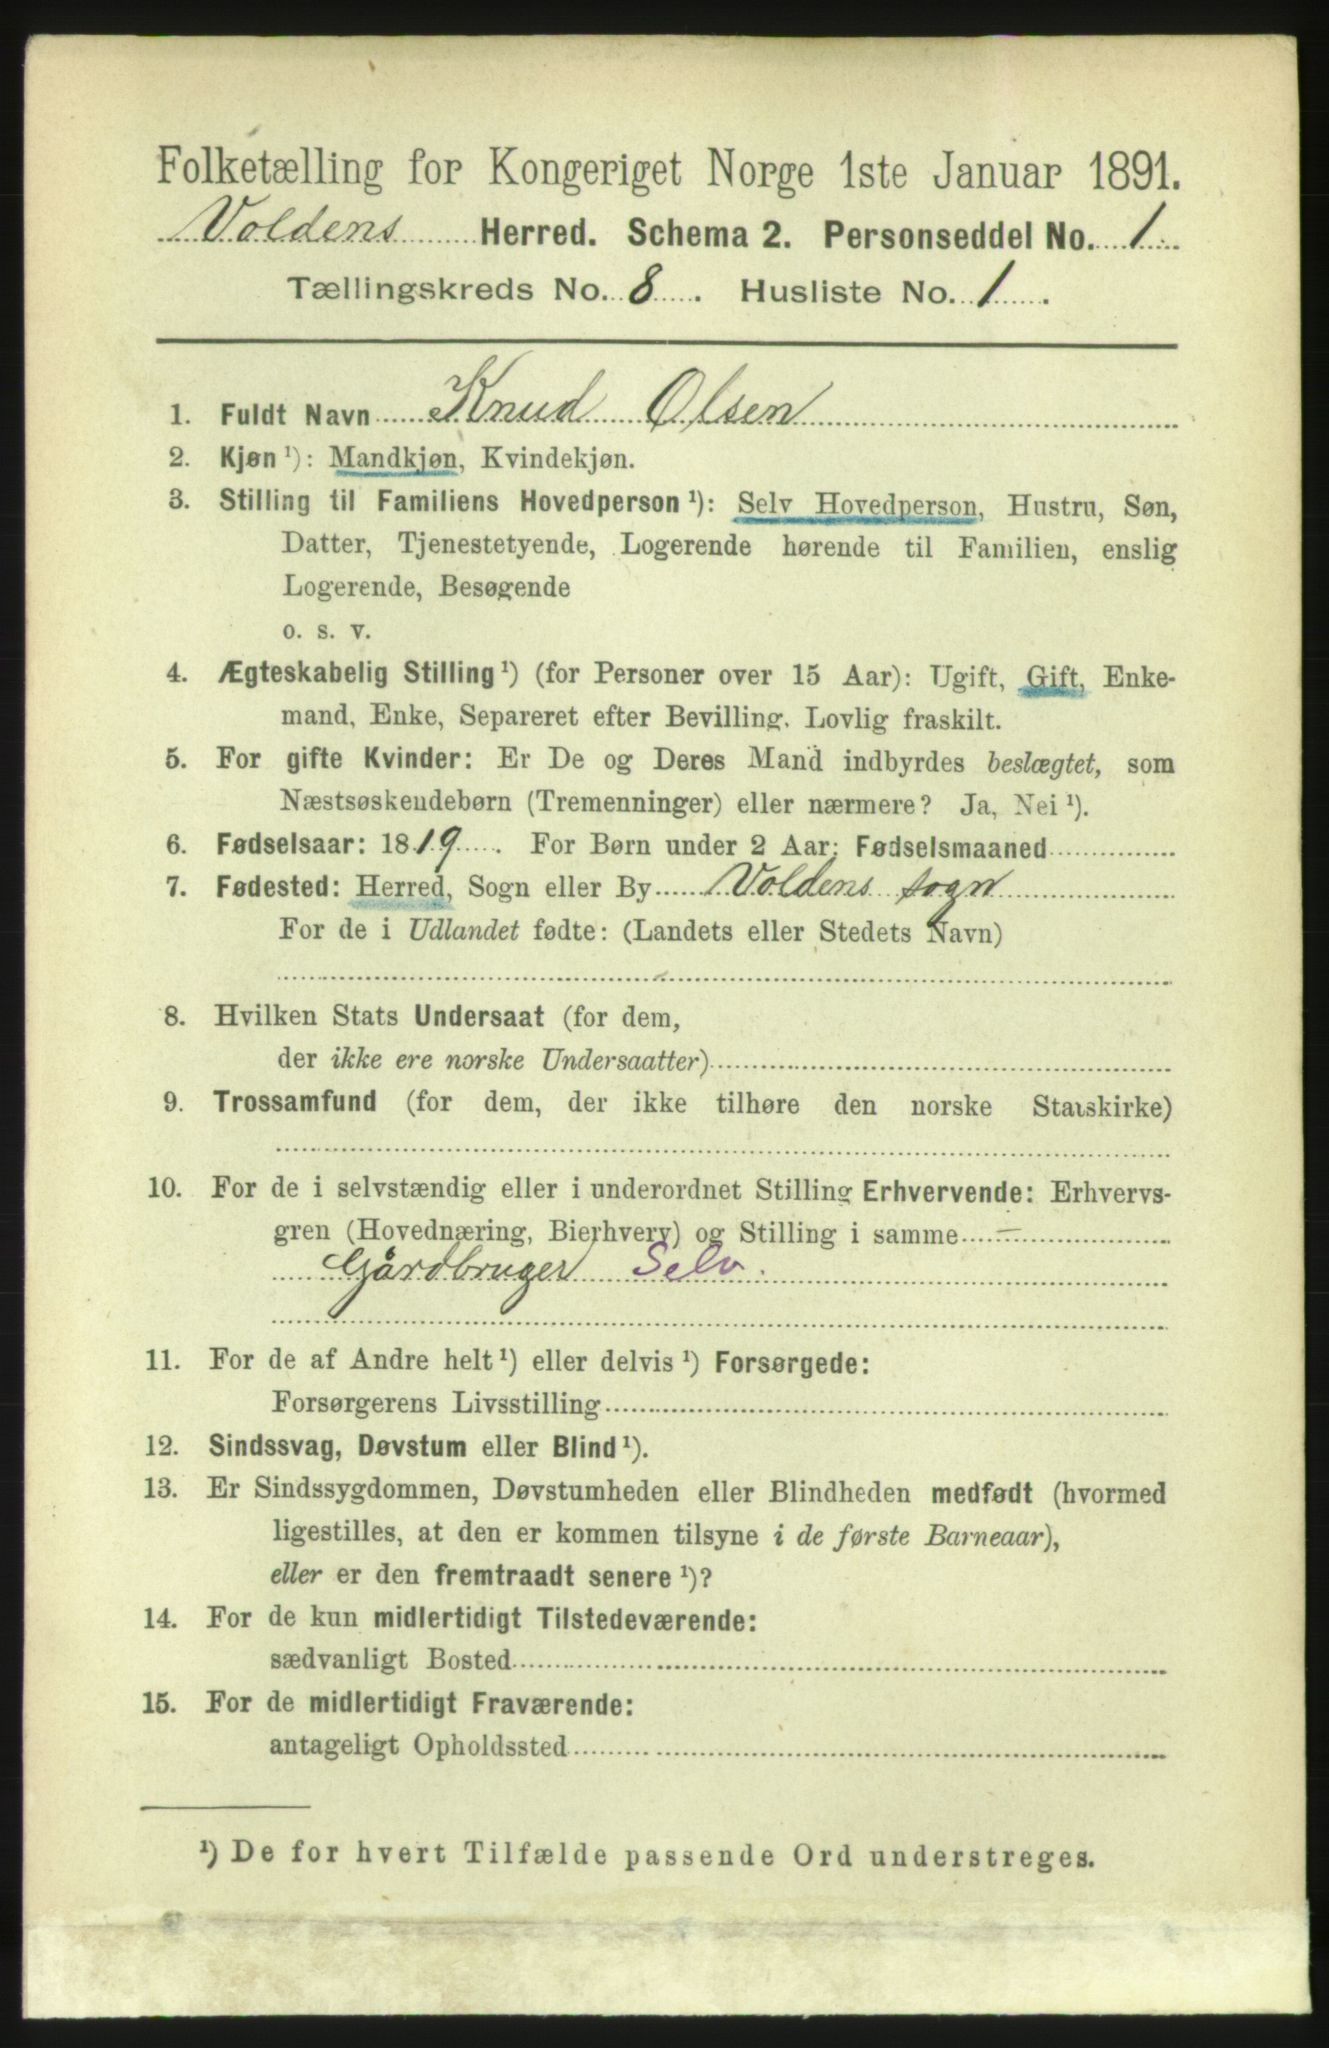 Folketælling for Kongeriget Norge 1ste Januar 1891.
Voldens Herred. Schema 2. Personseddel No. 1
Tællingskreds No. 8. Husliste No. 1.
1. Fuldt Navn Knud Olsen
2. Kjøn ¹): Mandkjøn, Kvindekjøn.
3. Stilling til Familiens Hovedperson ¹): Selv Hovedperson, Hustru, Søn,
Datter, Tjenestetyende, Logerende hørende til Familien, enslig
Logerende, Besøgende
o. s. v.
4. Ægteskabelig Stilling ¹) (for Personer over 15 Aar): Ugift, Gift, Enke-
mand, Enke, Separeret efter Bevilling. Lovlig fraskilt.
5. For gifte Kvinder: Er De og Deres Mand indbyrdes beslægtet, som
Næstsøskendebørn (Tremenninger) eller nærmere? Ja, Nei ¹).
6. Fødselsaar: 1819. For Børn under 2 Aar: Fødselsmaaned
7. Fødested: Herred, Sogn eller By Voldens sogn
For de i Udlandet fødte: (Landets eller Stedets Navn)
8. Hvilken Stats Undersaat (for dem,
der ikke ere norske Undersaatter)
9. Trossamfund (for dem, der ikke tilhøre den norske Statskirke)
10. For de i selvstændig eller i underordnet Stilling Erhvervende: Erhvervs-
gren (Hovednæring, Bierhverv) og Stilling i samme —
Gårdbruger Selv.
11. For de af Andre helt ¹) eller delvis ¹) Forsørgede:
Forsørgerens Livsstilling
12. Sindssvag, Døvstum eller Blind ¹).
13. Er Sindssygdommen, Døvstumheden eller Blindheden medfødt (hvormed
ligestilles, at den er kommen tilsyne i de første Barneaar),
eller er den fremtraadt senere ¹)?
14. For de kun midlertidigt Tilstedeværende:
sædvanligt Bosted
15. For de midlertidigt Fraværende:
antageligt Opholdssted
¹) De for hvert Tilfælde passende Ord understreges.